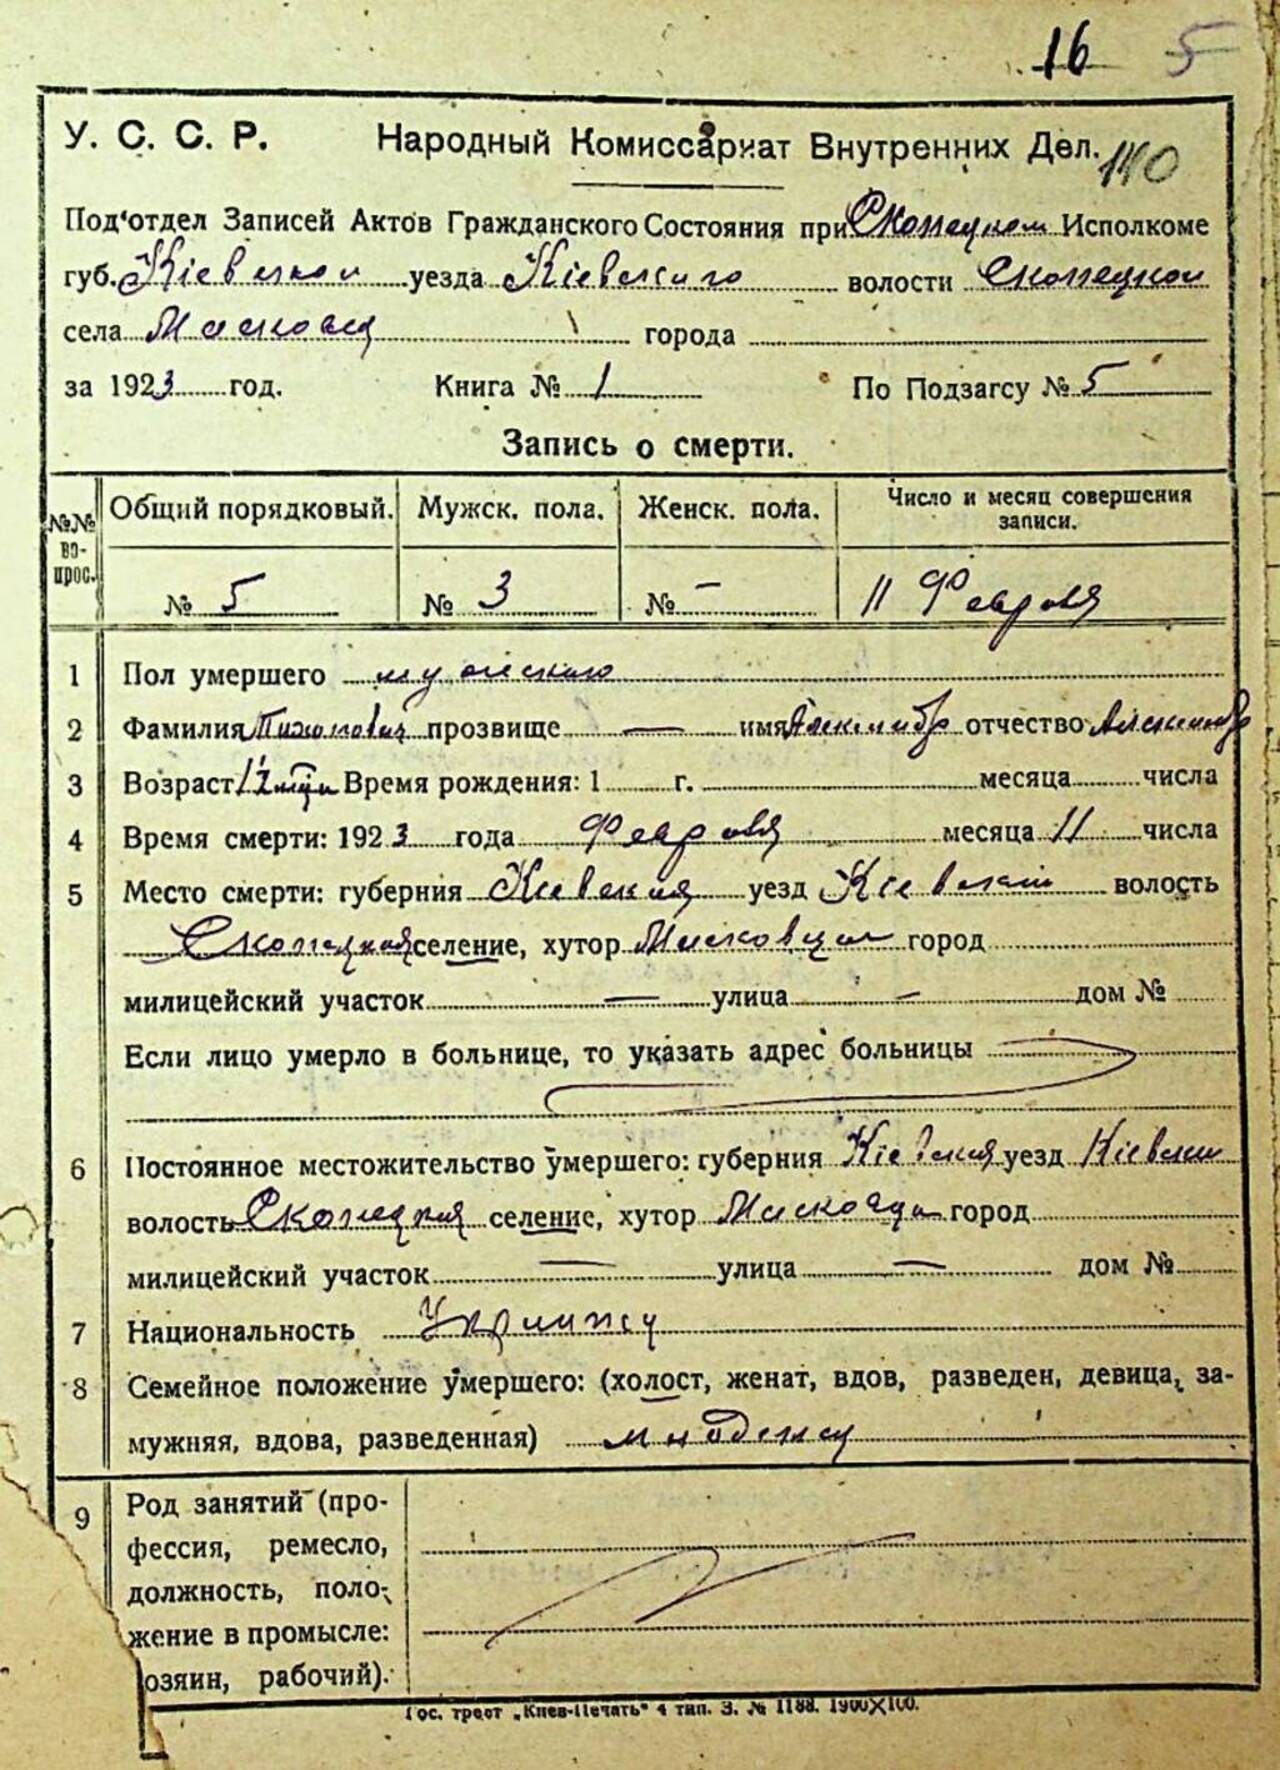 16 5
У. С. С. Р. Народный Комиссариат Внутренних Дел. 140
Под'отдел Записей Актов Гражданского Состояния при Скопецком Исполкоме
губ. Кіевской уезда Кіевского волости Скопецкой
села Масковец города
за 1923 год. Книга № 1 По Подзагсу № 5
Запись о смерти.
№№ вопрос. Общий порядковый. Мужск. пола. Женск. пола. Число и месяц совершения
записи.
№ 5 № 3 № - 11 Февраля
1 Пол умершего мужеского
2 Фамилия прозвище — имя Александр отчество Александр
3 Возраст Время рождения: 1 г. месяца числа
4 Время смерти: 1923 года Февраля месяца 11 числа
5 Место смерти: губерния Кіевская уезд Кіевский волость
Скопецкая селение, хутор Масковцы город
милицейский участок — улица - дом №
Если лицо умерло в больнице, то указать адрес больницы
6 Постоянное местожительство умершего: губерния Кіевская уезд Кіевский
волость Скопецкая селение, хутор Масковцы город
милицейский участок — улица — дом №
7 Национальность
8 Семейное положение умершего: (холост, женат, вдов, разведен, девица, за-
мужняя, вдова, разведенная) младенец
9 Род занятий (про-
фессия, ремесло,
должность, поло-
жение в промысле:
озяин, рабочий).
Гос. трест „Киев-Печать" 4 тип. З. № 1188. 1900×100.